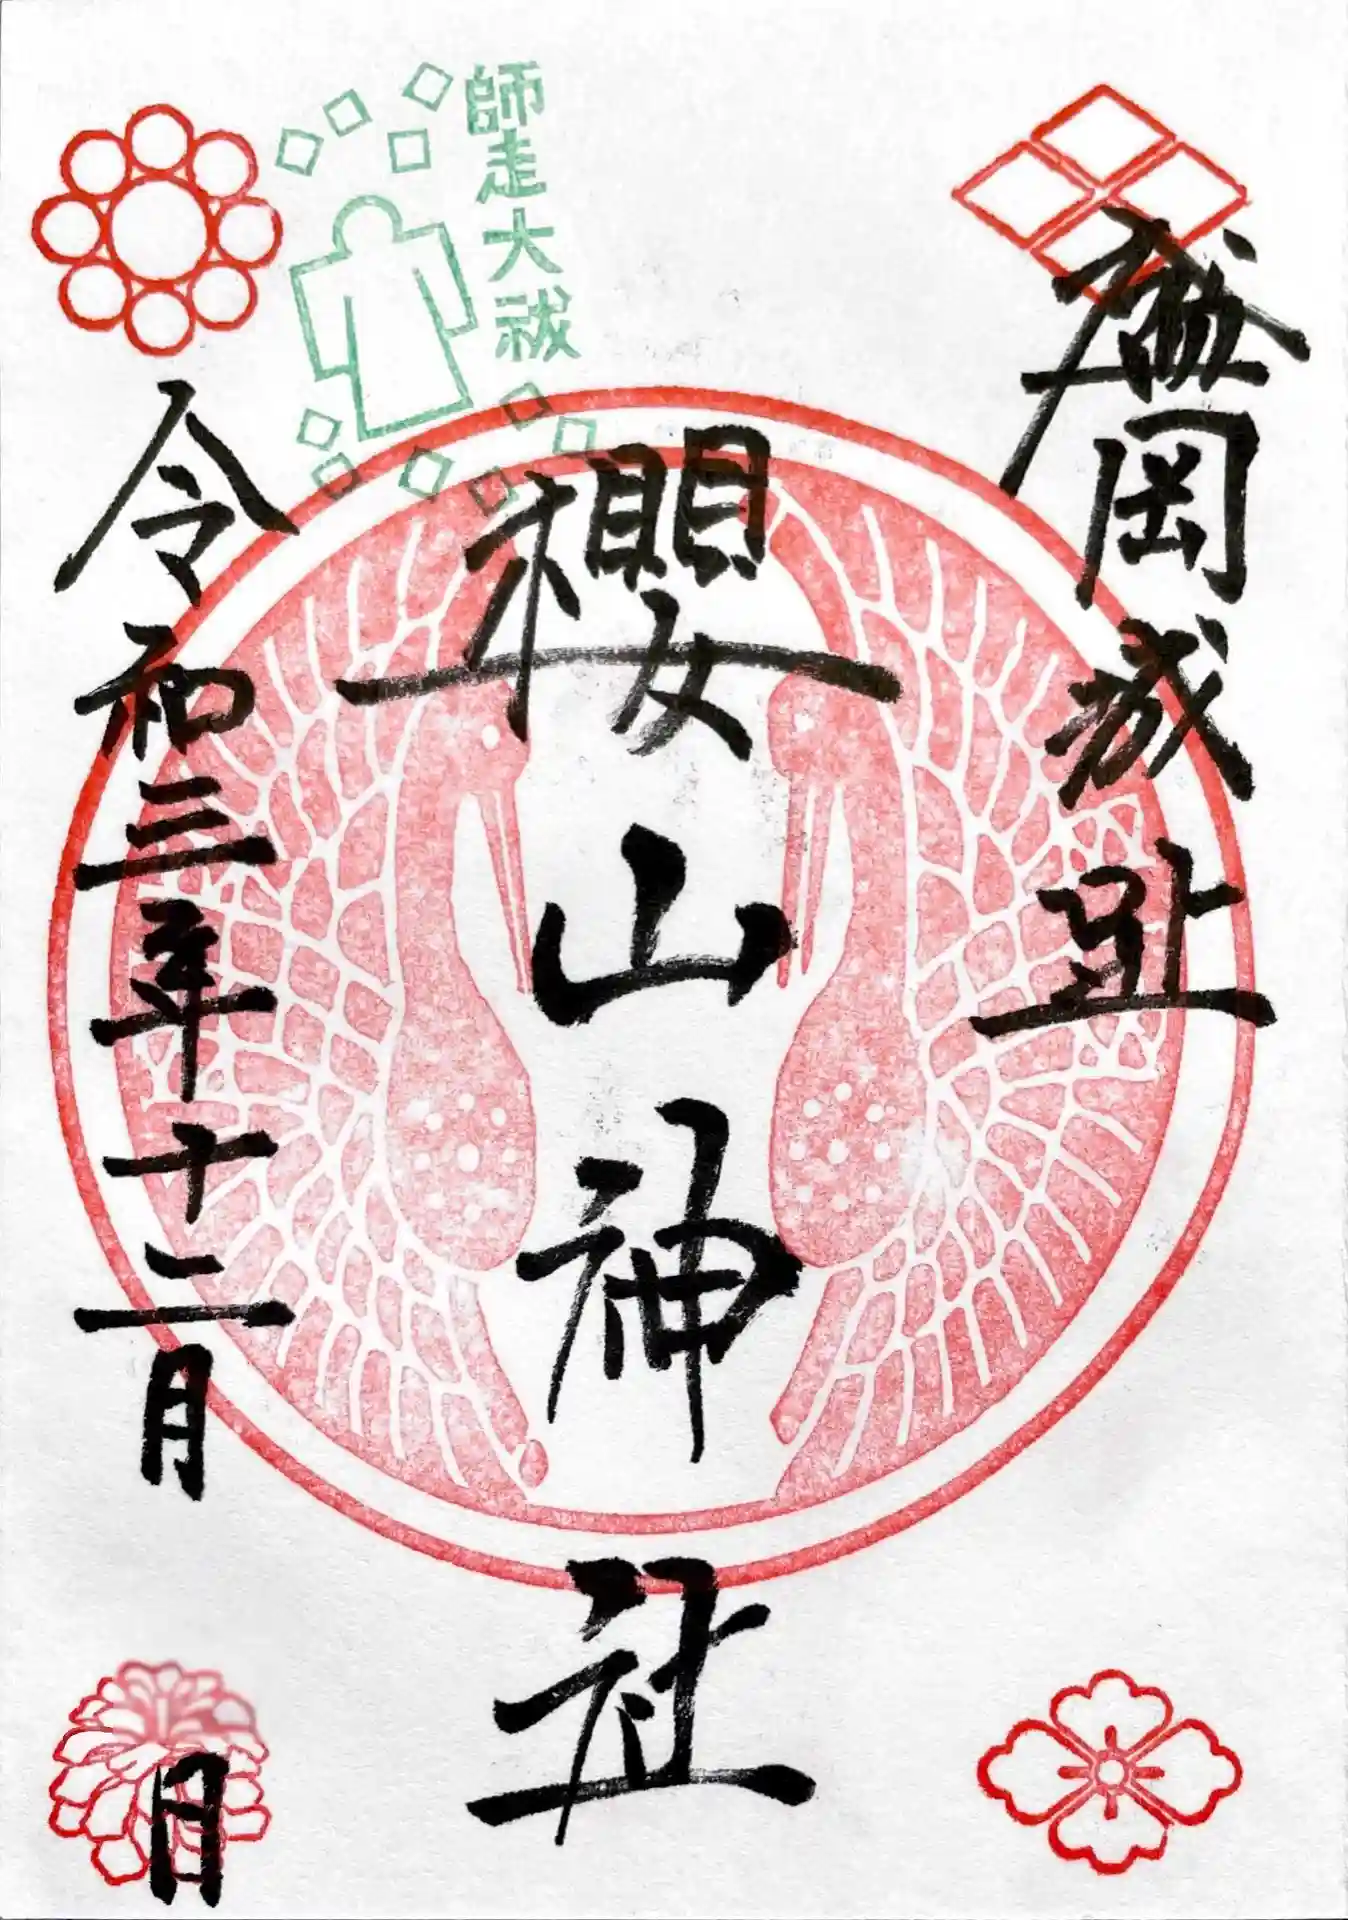 盛岡城趾
櫻山神社
師走大祓
令和三年十二月 日